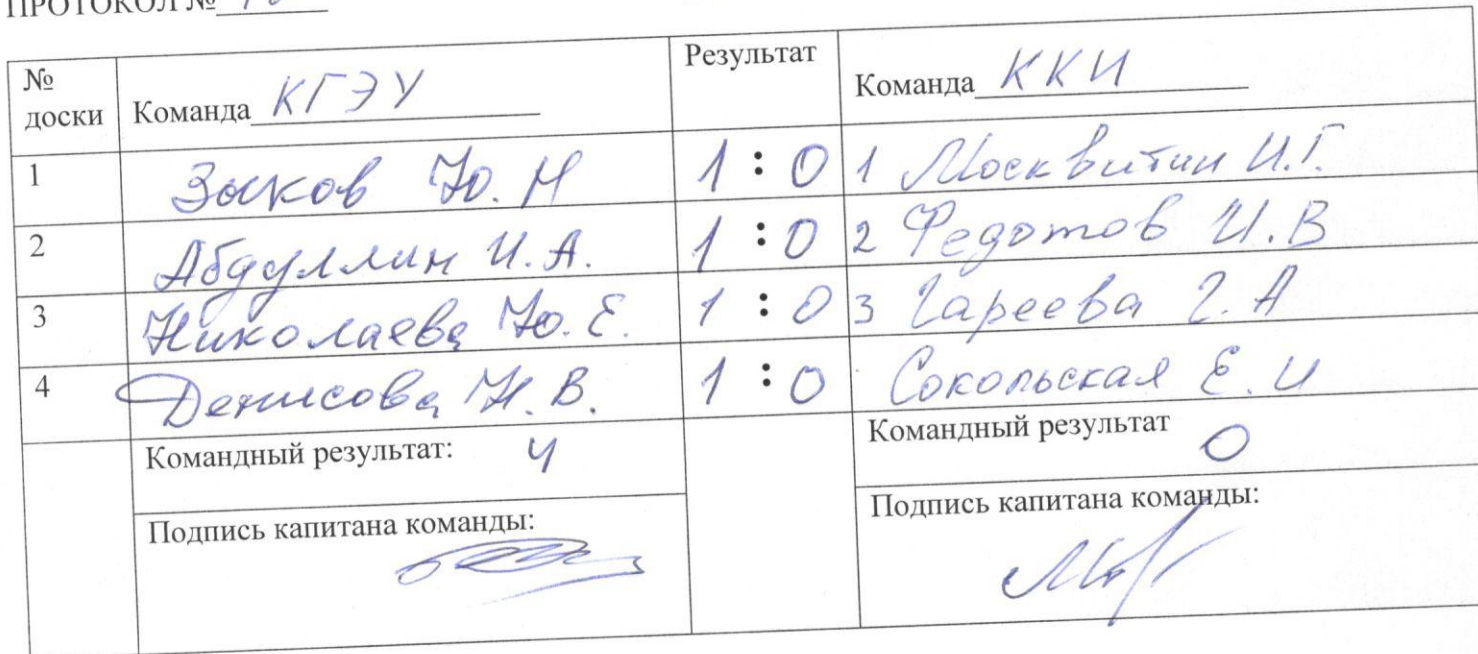 ПРОТОКОЛ №
№ доски Команда КГЭУ Результат Команда ККИ
1 Зыков Ю. Н 1 : 0 1 Москвитин И.Г.
2 Абдуллин И. А. 1 : 0 2 Федотов И. В
3 Николаева Ю. Е. 1 : 0 3 Гареева Г. А
4 Денисова Н. В. 1 : 0 Сокольская Е. И
Командный результат: 4 Командный результат 0
Подпись капитана команды: Подпись капитана команды: